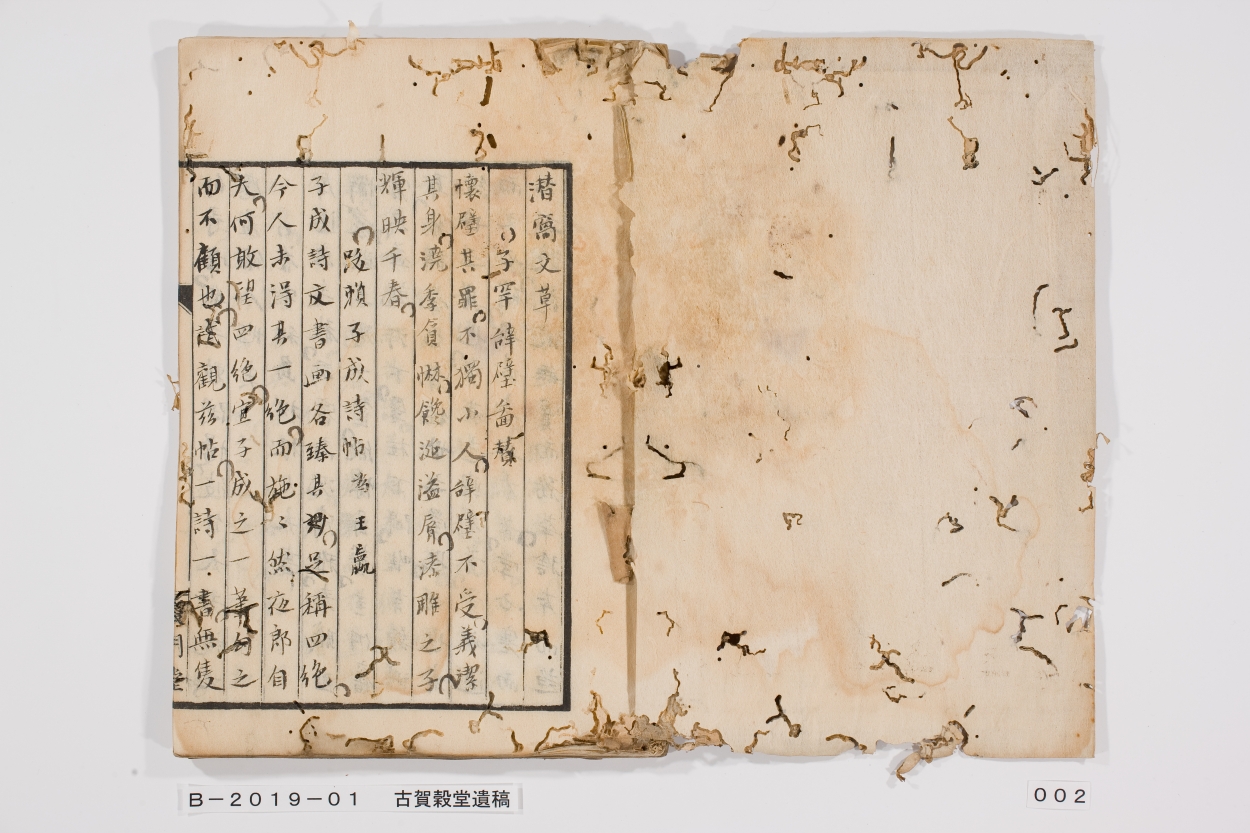 潜窩文草
子罕辞璧畨賛
懐璧其罪不獨小人辞璧不受義潔
其身澆季貪惏饞涎溢唇漆雕之子
輝映千春
跋頼子成詩帖 為王嬴
子成詩文書画各臻其妙足称四絶
今人未得其一絶而施〻然夜郎自
大何敢望四絶宜子成之一
之
而不顧也試觀茲帖一詩一書無隻
B-2019-01 古賀穀堂遺稿
002